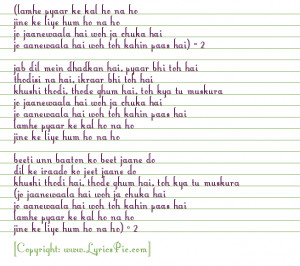 (lamhe pyaar ke kal ho na ho
jine ke liye hum ho na ho
jo jaanewaala hai woh ja chuka hai
jo aanewaala hai woh toh kahin paas hai) - 2
jab dil mein dhadkan hai, pyaar bhi toh hai
thodisi na hai, ikraar bhi toh hai
khushi thodi, thode ghum hai, toh kya tu muskura
jo jaanewaala hai woh ja chuka hai
jo aanewaala hai woh toh kahin paas hai
lamhe pyaar ke kal ho na ho
jine ke liye hum ho na ho
beeti unn baaton ko beet jaane do
dil ke iraado ko jeet jaane do
khushi thodi hai, thode ghum hai, toh kya tu muskura
(jo jaanewaala hai woh ja chuka hai
jo aanewaala hai woh toh kahin paas hai
lamhe pyaar ke kal ho na ho
jine ke liye hum ho na ho) - 2
[Copyright: www.LyricsPic.com]